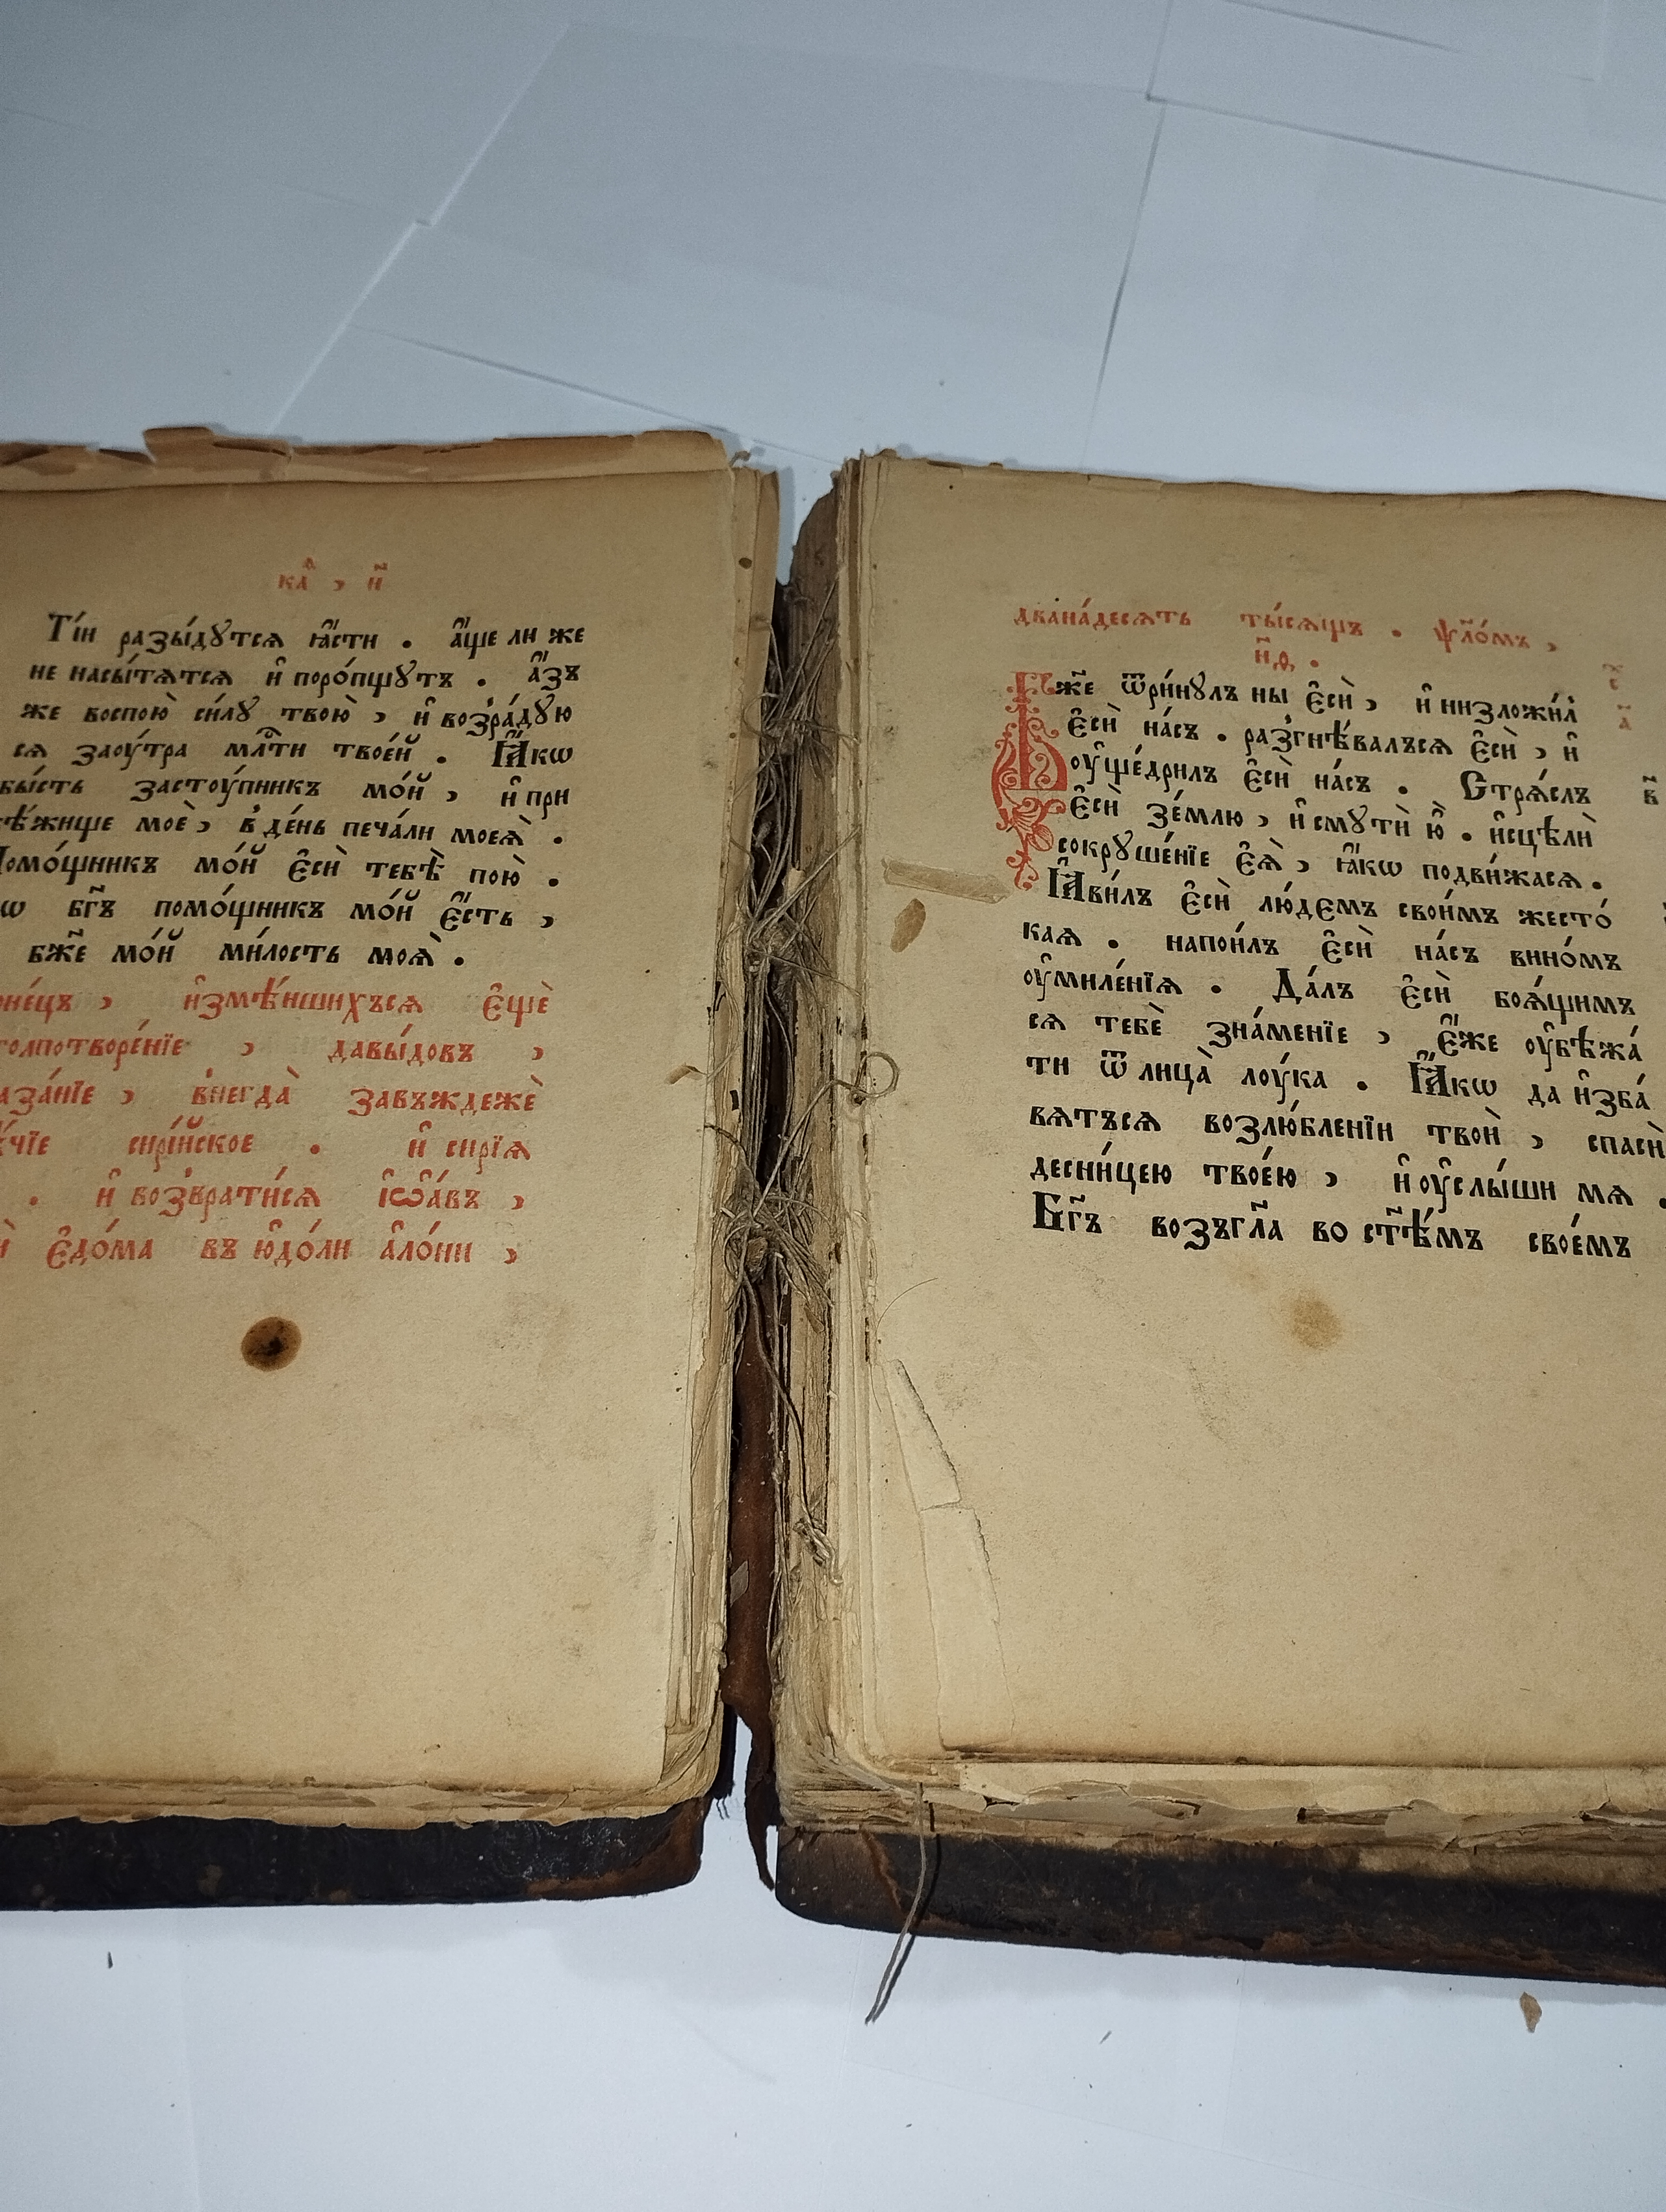 кА҃ , и҃
Ті́и разы́дꙋтсѧ ꙗ҆́сти . а҆́ще ли же
не насы́тѧтсѧ и҆ поро́пщꙋтъ . а҆́зъ
же воспою̀ си́лꙋ твою̀ , и҆ возра́дꙋю
сѧ заоу́тра млⷭ҇ти твое́й . Ꙗ҆́кѡ
бы́сть застоу́пникъ мо́й , и҆ при
бѣ́жище моѐ , в де́нь печа́ли моеѧ̀ .
Помо́щникъ мо́й є҆сѝ тебѣ̀ пою̀ .
бг҃ъ помо́щникъ мо́й є҆́сть ,
бж҃е мо́й ми́лость моѧ̀ .
и҆змѣ́ншихъсѧ є҆щѐ
столпотворе́нїе , давы́довъ ,
внегда̀ завъждежѐ
сирі́йское . и҆ сирїѧ
. и҆ возврати́сѧ і҆ѡа́въ ,
є҆до́ма въ ю҆до́ли а҆ло́ни ,
двана́десѧть ты́сѧщъ . ѱло́мъ ,
н҃ѳ .
Бж҃е ѿри́нꙋлъ ны є҆сѝ , и҆ низложи́л
є҆сѝ на́съ . разгнѣ́валъсѧ є҆сѝ , и҆
оу҆ще́дрилъ є҆сѝ на́съ . Стрѧ́слъ
є҆сѝ зе́млю , и҆ смꙋтѝ ю҆̀ . и҆сцѣлѝ
сокрꙋше́нїе є҆ѧ̀ , ꙗ҆́кѡ подви́жасѧ .
Ꙗ҆ви́лъ є҆сѝ лю́демъ свои́мъ жесто́
каѧ . напои́лъ є҆сѝ на́съ вино́мъ
оу҆миле́нїѧ . Да́лъ є҆сѝ боѧ́щимъ
сѧ тебѐ зна́менїе , є҆́же оу҆бѣжа́
ти ѿ лица̀ лоу́ка . Ꙗ҆́кѡ да и҆зба́
вѧтъсѧ возлю́бленїи твоѝ , спасѝ
десни́цею твое́ю , и҆ оу҆слы́ши мѧ .
Бг҃ъ возъгл҃а во ст҃ѣ́мъ свое́мъ